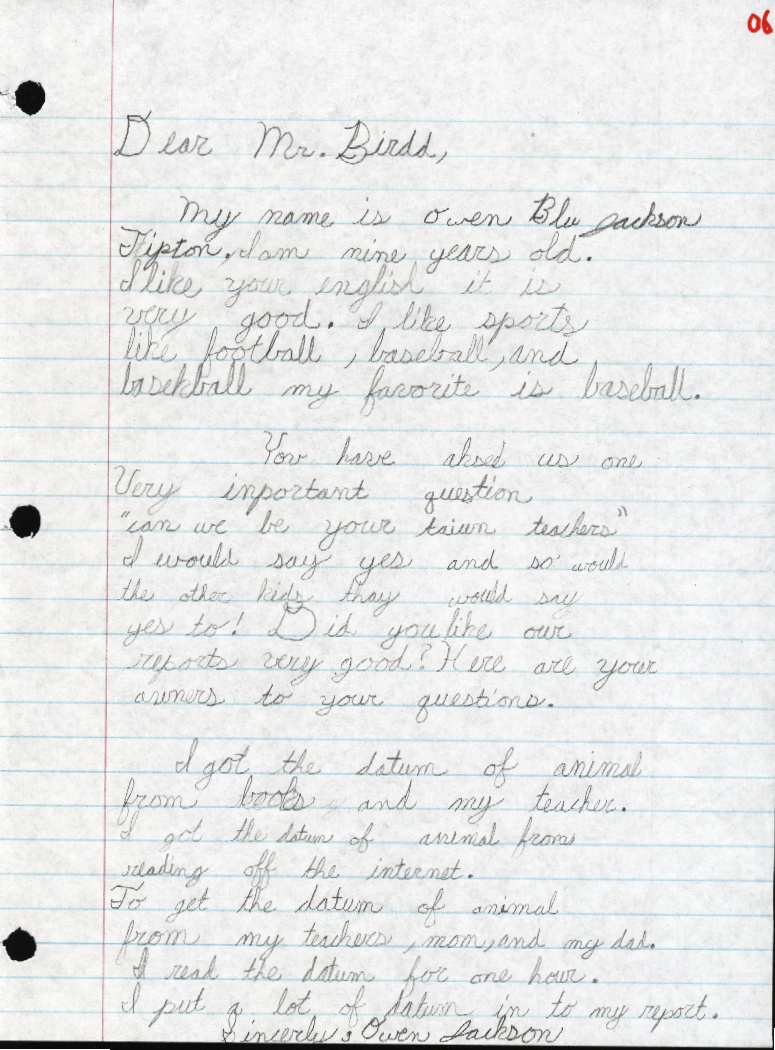 06
Dear Mr. Birdd,
My name is Owen Blu Jackson
Tipton. I am nine years old.
I like your english it is
very good. I like sports
like football , baseball, and
basekball my favorite is baseball.
You have aksed us one
Very inportant question
"can we be your taiwn teachers"
I would say yes and so would
the other kids thay would say
yes to! Did you like our
reports very good? Here are your
awners to your questions.
I got the datum of animal
from books and my teacher.
I got the datum of animal from
reading off the internet.
To get the datum of animal
from my teachers , mom, and my dad.
I read the datum for one hour.
I put a lot of datum in to my report.
Sincerly, Owen Jackson